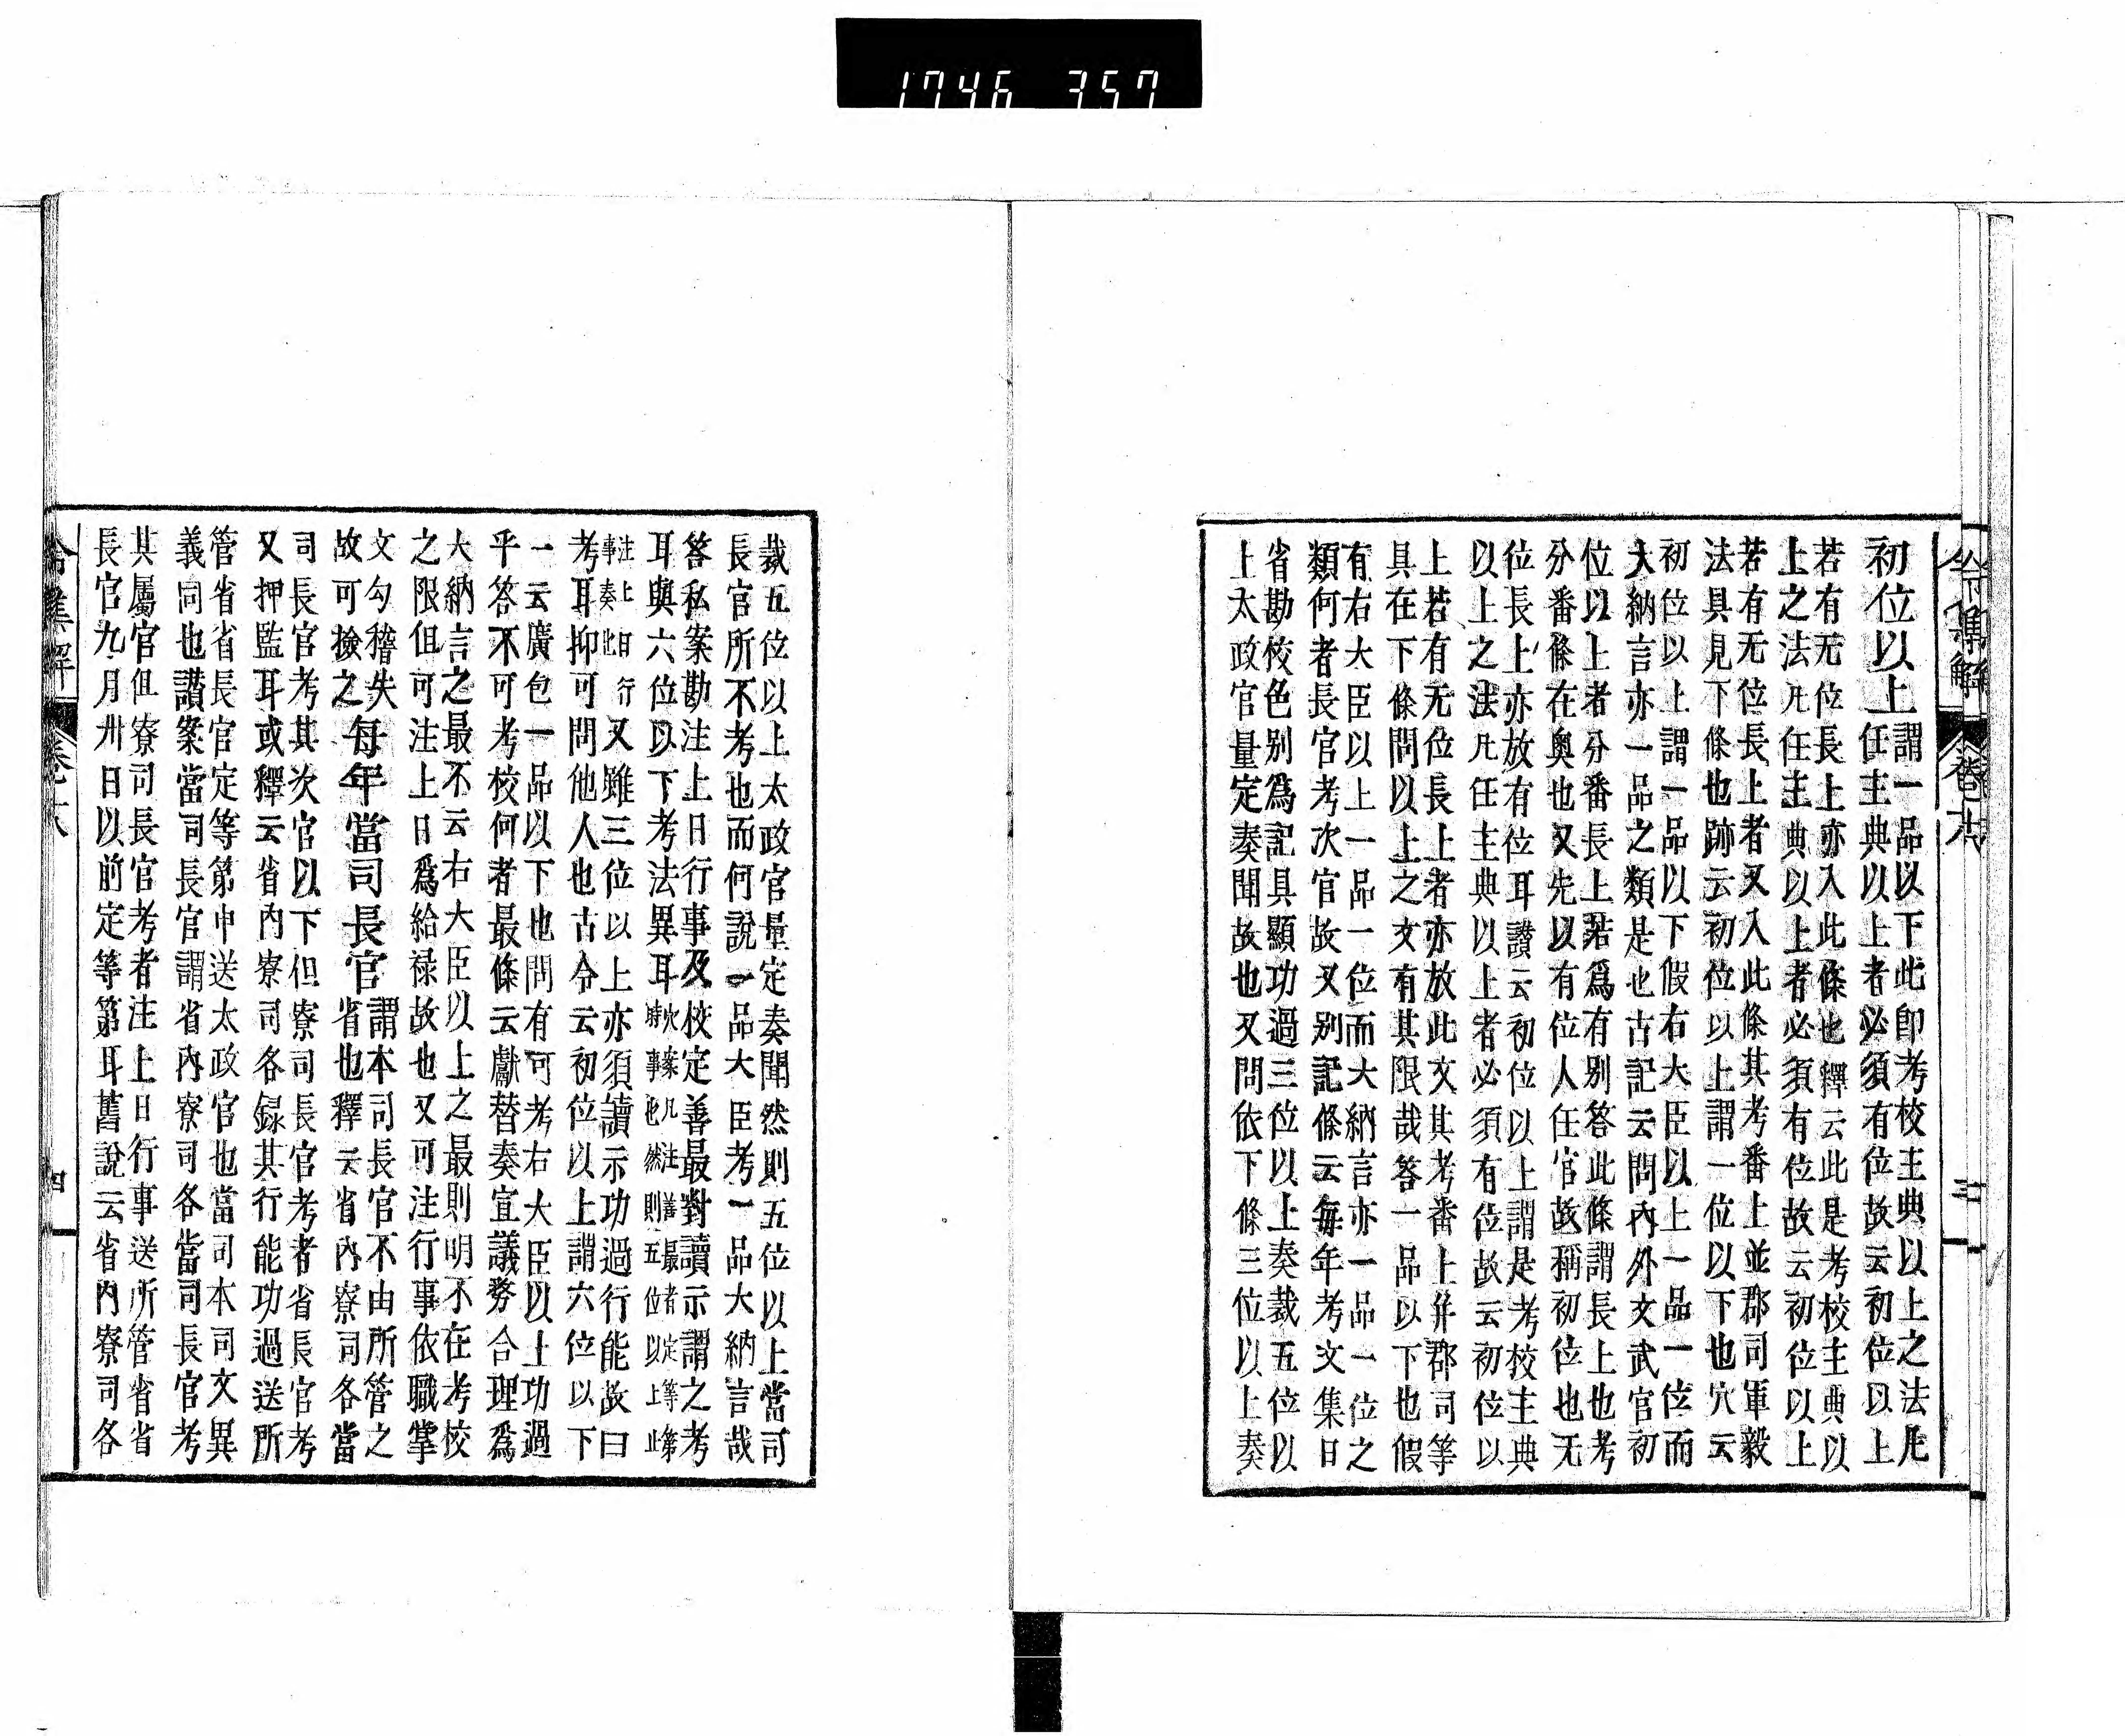 1746 357
令集解 卷十八 三
初位以上
謂一品以下此卽考校主典以上之法凡
任主典以上者必須有位故云初位以上
若有无位長上亦入此條也釋云此是考校主典以
上之法凡任主典以上者必須有位故云初位以上
若有无位長上者又入此條其考番上並郡司軍毅
法具見下條也跡云初位以上謂一位以下也穴云
初位以上謂一品以下假右大臣以上一品一位而
大納言亦一品之類是也古記云問內外文武官初
位以上者分番長上若爲有别答此條謂長上也考
分番條在奥也又先以有位人任官故稱初位也无
位長上亦放有位耳讃云初位以上謂是考校主典
以上之法凡任主典以上者必須有位故云初位以
上若有无位長上者亦放此文其考番上幷郡司等
具在下條問以上之文有其限哉答一品以下也假
有右大臣以上一品一位而大納言亦一品一位之
類何者長官考次官故又别記條云每年考文集日
省勘校色别爲記具顯功過三位以上奏裁五位以
上太政官量定奏聞故也又問依下條三位以上奏
裁五位以上太政官量定奏聞然則五位以上當司
長官所不考也而何說一品大臣考一品大納言哉
答私案勘注上日行事及校定善最對讀示謂之考
耳與六位以下考法異耳
注上日行
事奏此
又雖三位以上亦須讀示功過行能故曰
考耳抑可問他人也古令云初位以上謂六位以下
一云廣包一品以下也問有可考右大臣以上功過
乎答不可考校何者最條云獻替奏宜議務合理爲
大納言之最不云右大臣以上之最則明不在考校
之限但可注上日爲給禄故也又可注行事依職掌
文勾稽失
故可撿之
每年當司長官
謂本司長官不由所管之
省也釋云省內寮司各當
司長官考其次官以下但寮司長官考者省長官考
又押監耳或釋云省內寮司各録其行能功過送所
管省省長官定等第申送太政官也當司本司文異
義同也讃案當司長官謂省內寮司各當司長官考
其屬官但寮司長官考者注上日行事送所管省省
長官九月卅日以前定等第耳舊說云省內寮司各
令集解 卷十八 四